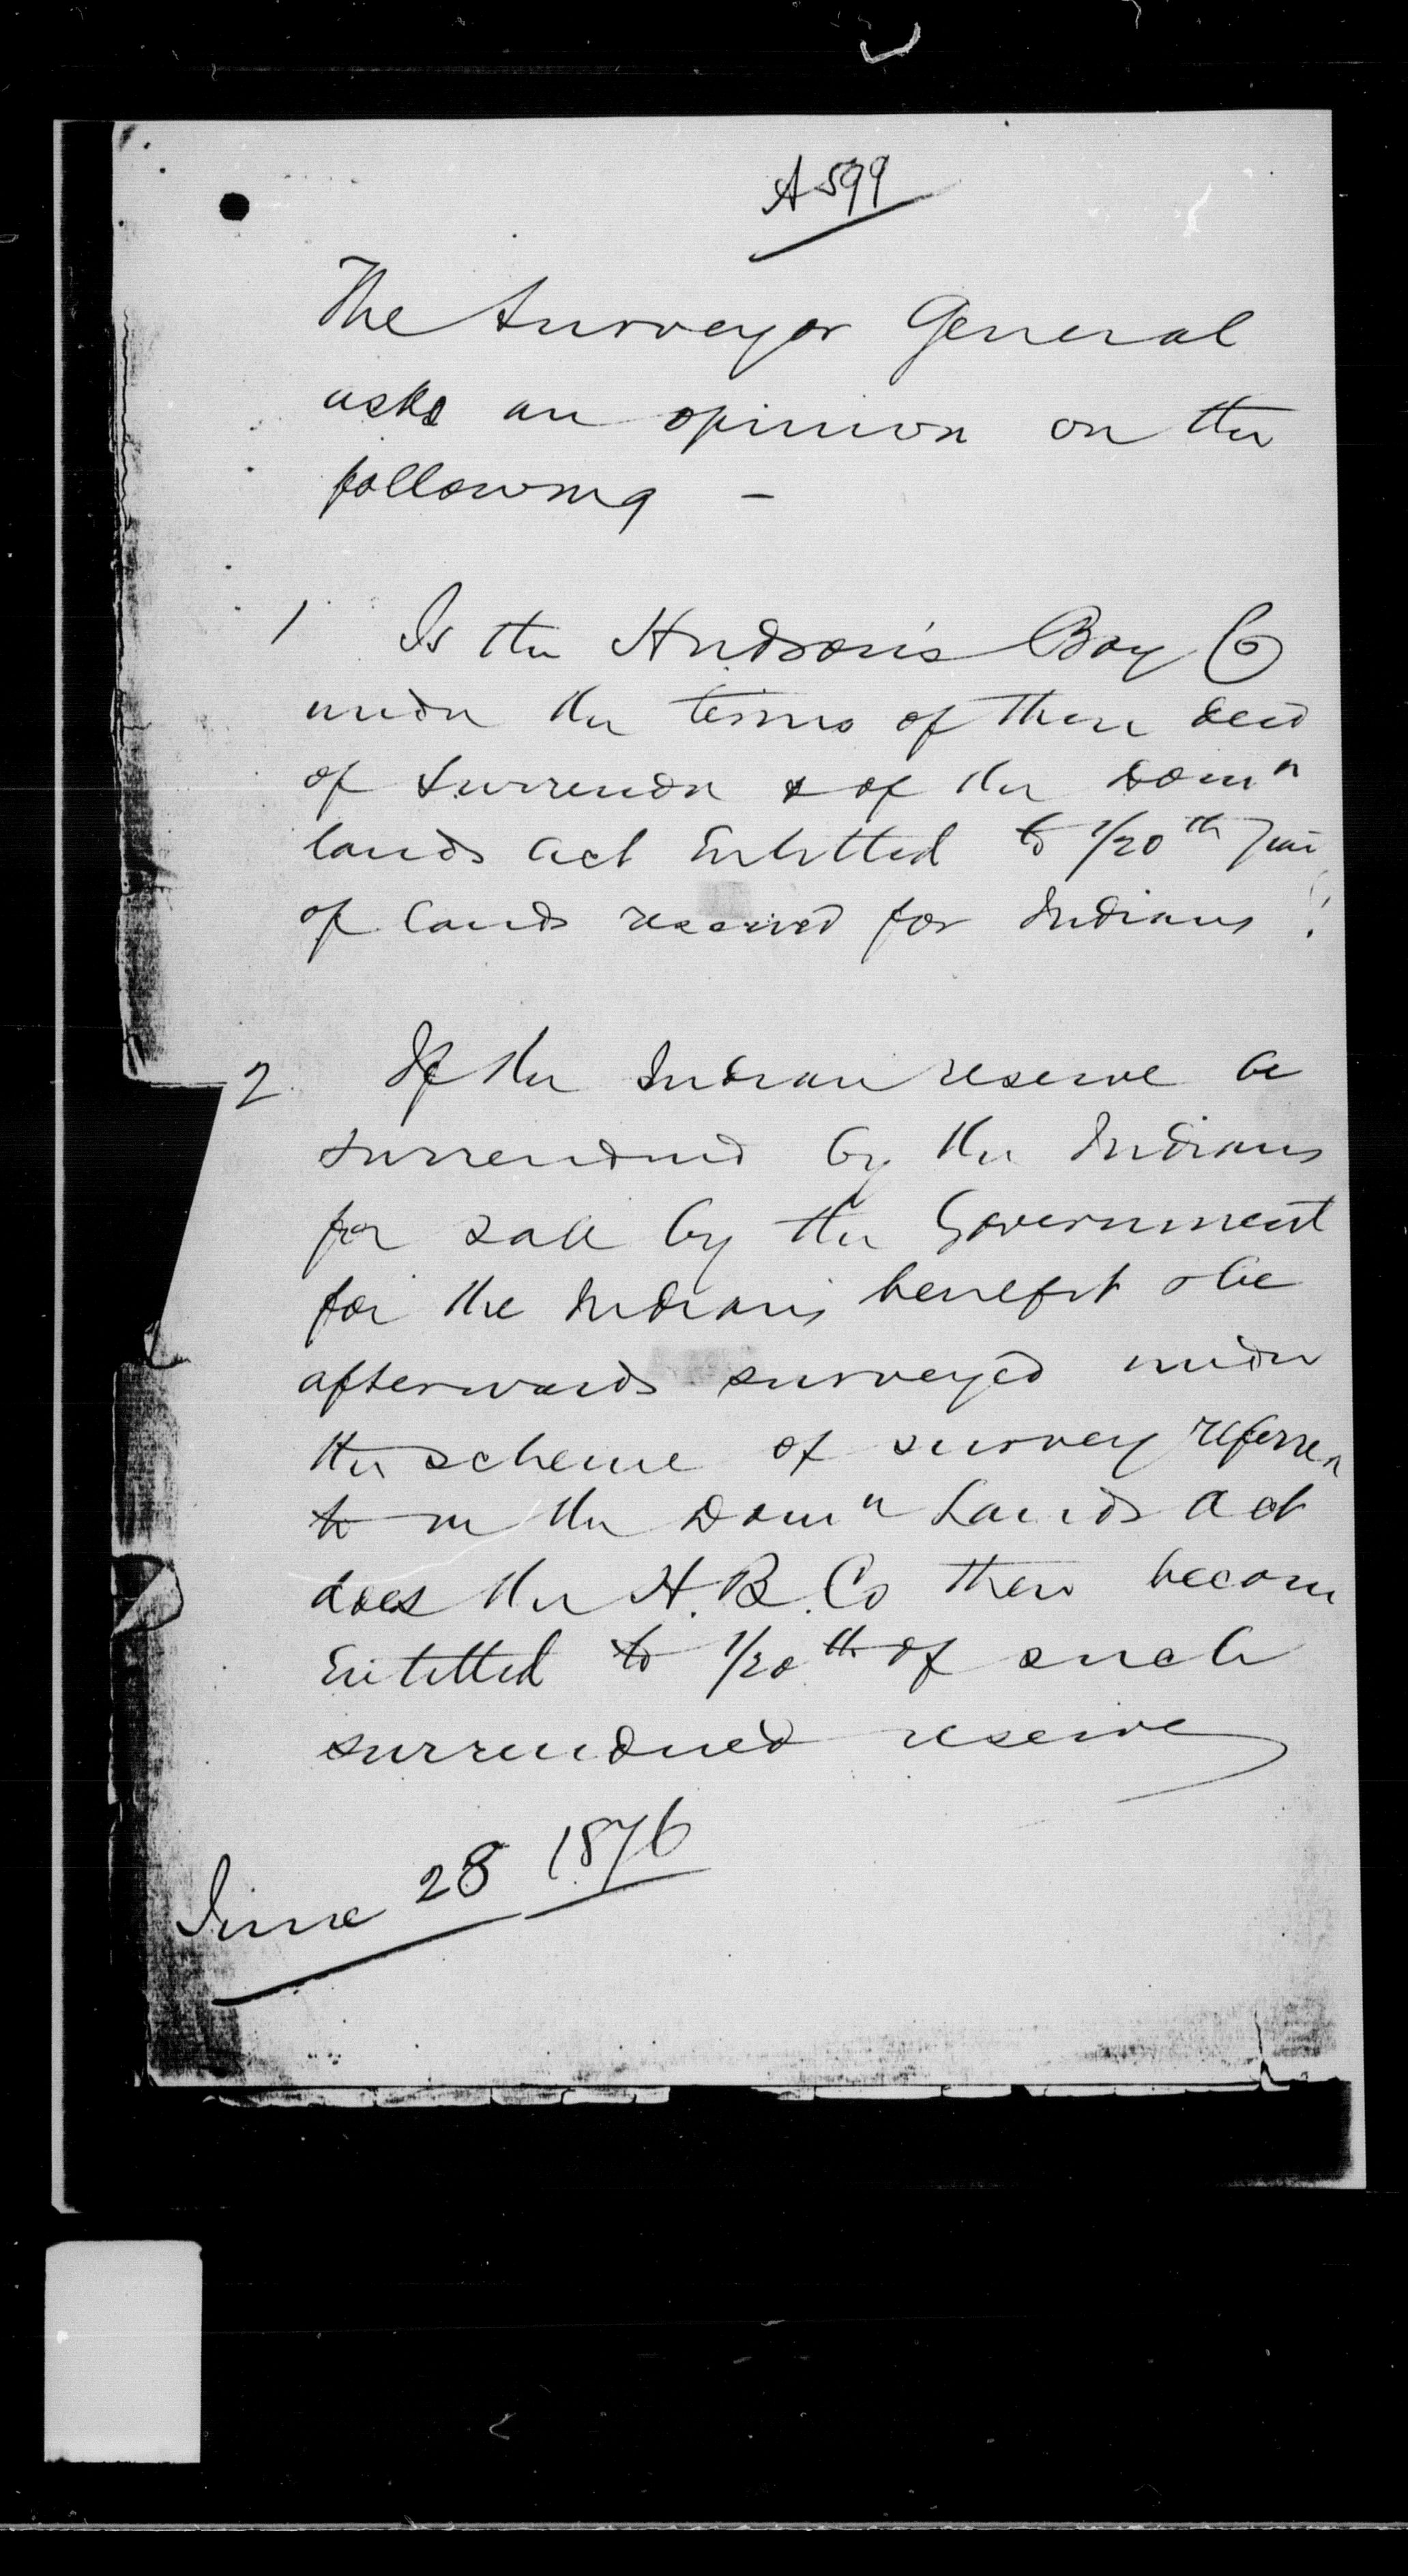 A 599
The Surveyor General
asks an opinion on the
following –
1 Is the Hudson's Bay Co
under the terms of their deed
of surrender & of the Domn
lands act Entitled to 1/20th
of lands reserved for Indians ?
2 If the Indian reserve be
surrendered by the Indians
for sale by the Government
for the Indians benefit & be
afterwards surveyed under
the scheme of survey referred
to in the Domn Lands Act
does the H. B. Co then become
Entitled to 1/20th of such
surrendered reserve
June 28 1876